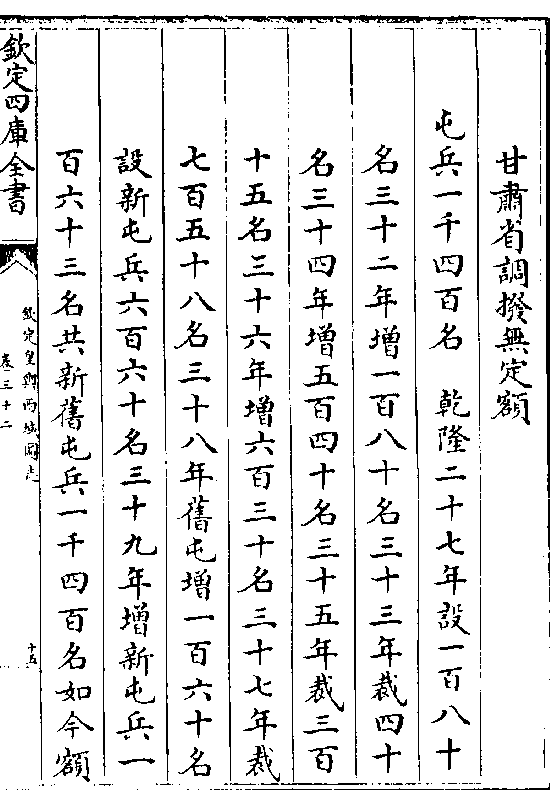 甘肅省調撥無定額
屯兵一千四百名　乾隆二十七年設一百八十
名三十二年增一百八十名三十三年裁四十
名三十四年增五百四十名三十五年裁三百
十五名三十六年增六百三十名三十七年裁
七百五十八名三十八年舊屯增一百六十名
設新屯兵六百六十名三十九年增新屯兵一
百六十三名共新舊屯兵一千四百名如今額
欽定四庫全書
欽定皇輿西域圖志
卷三十二
十五